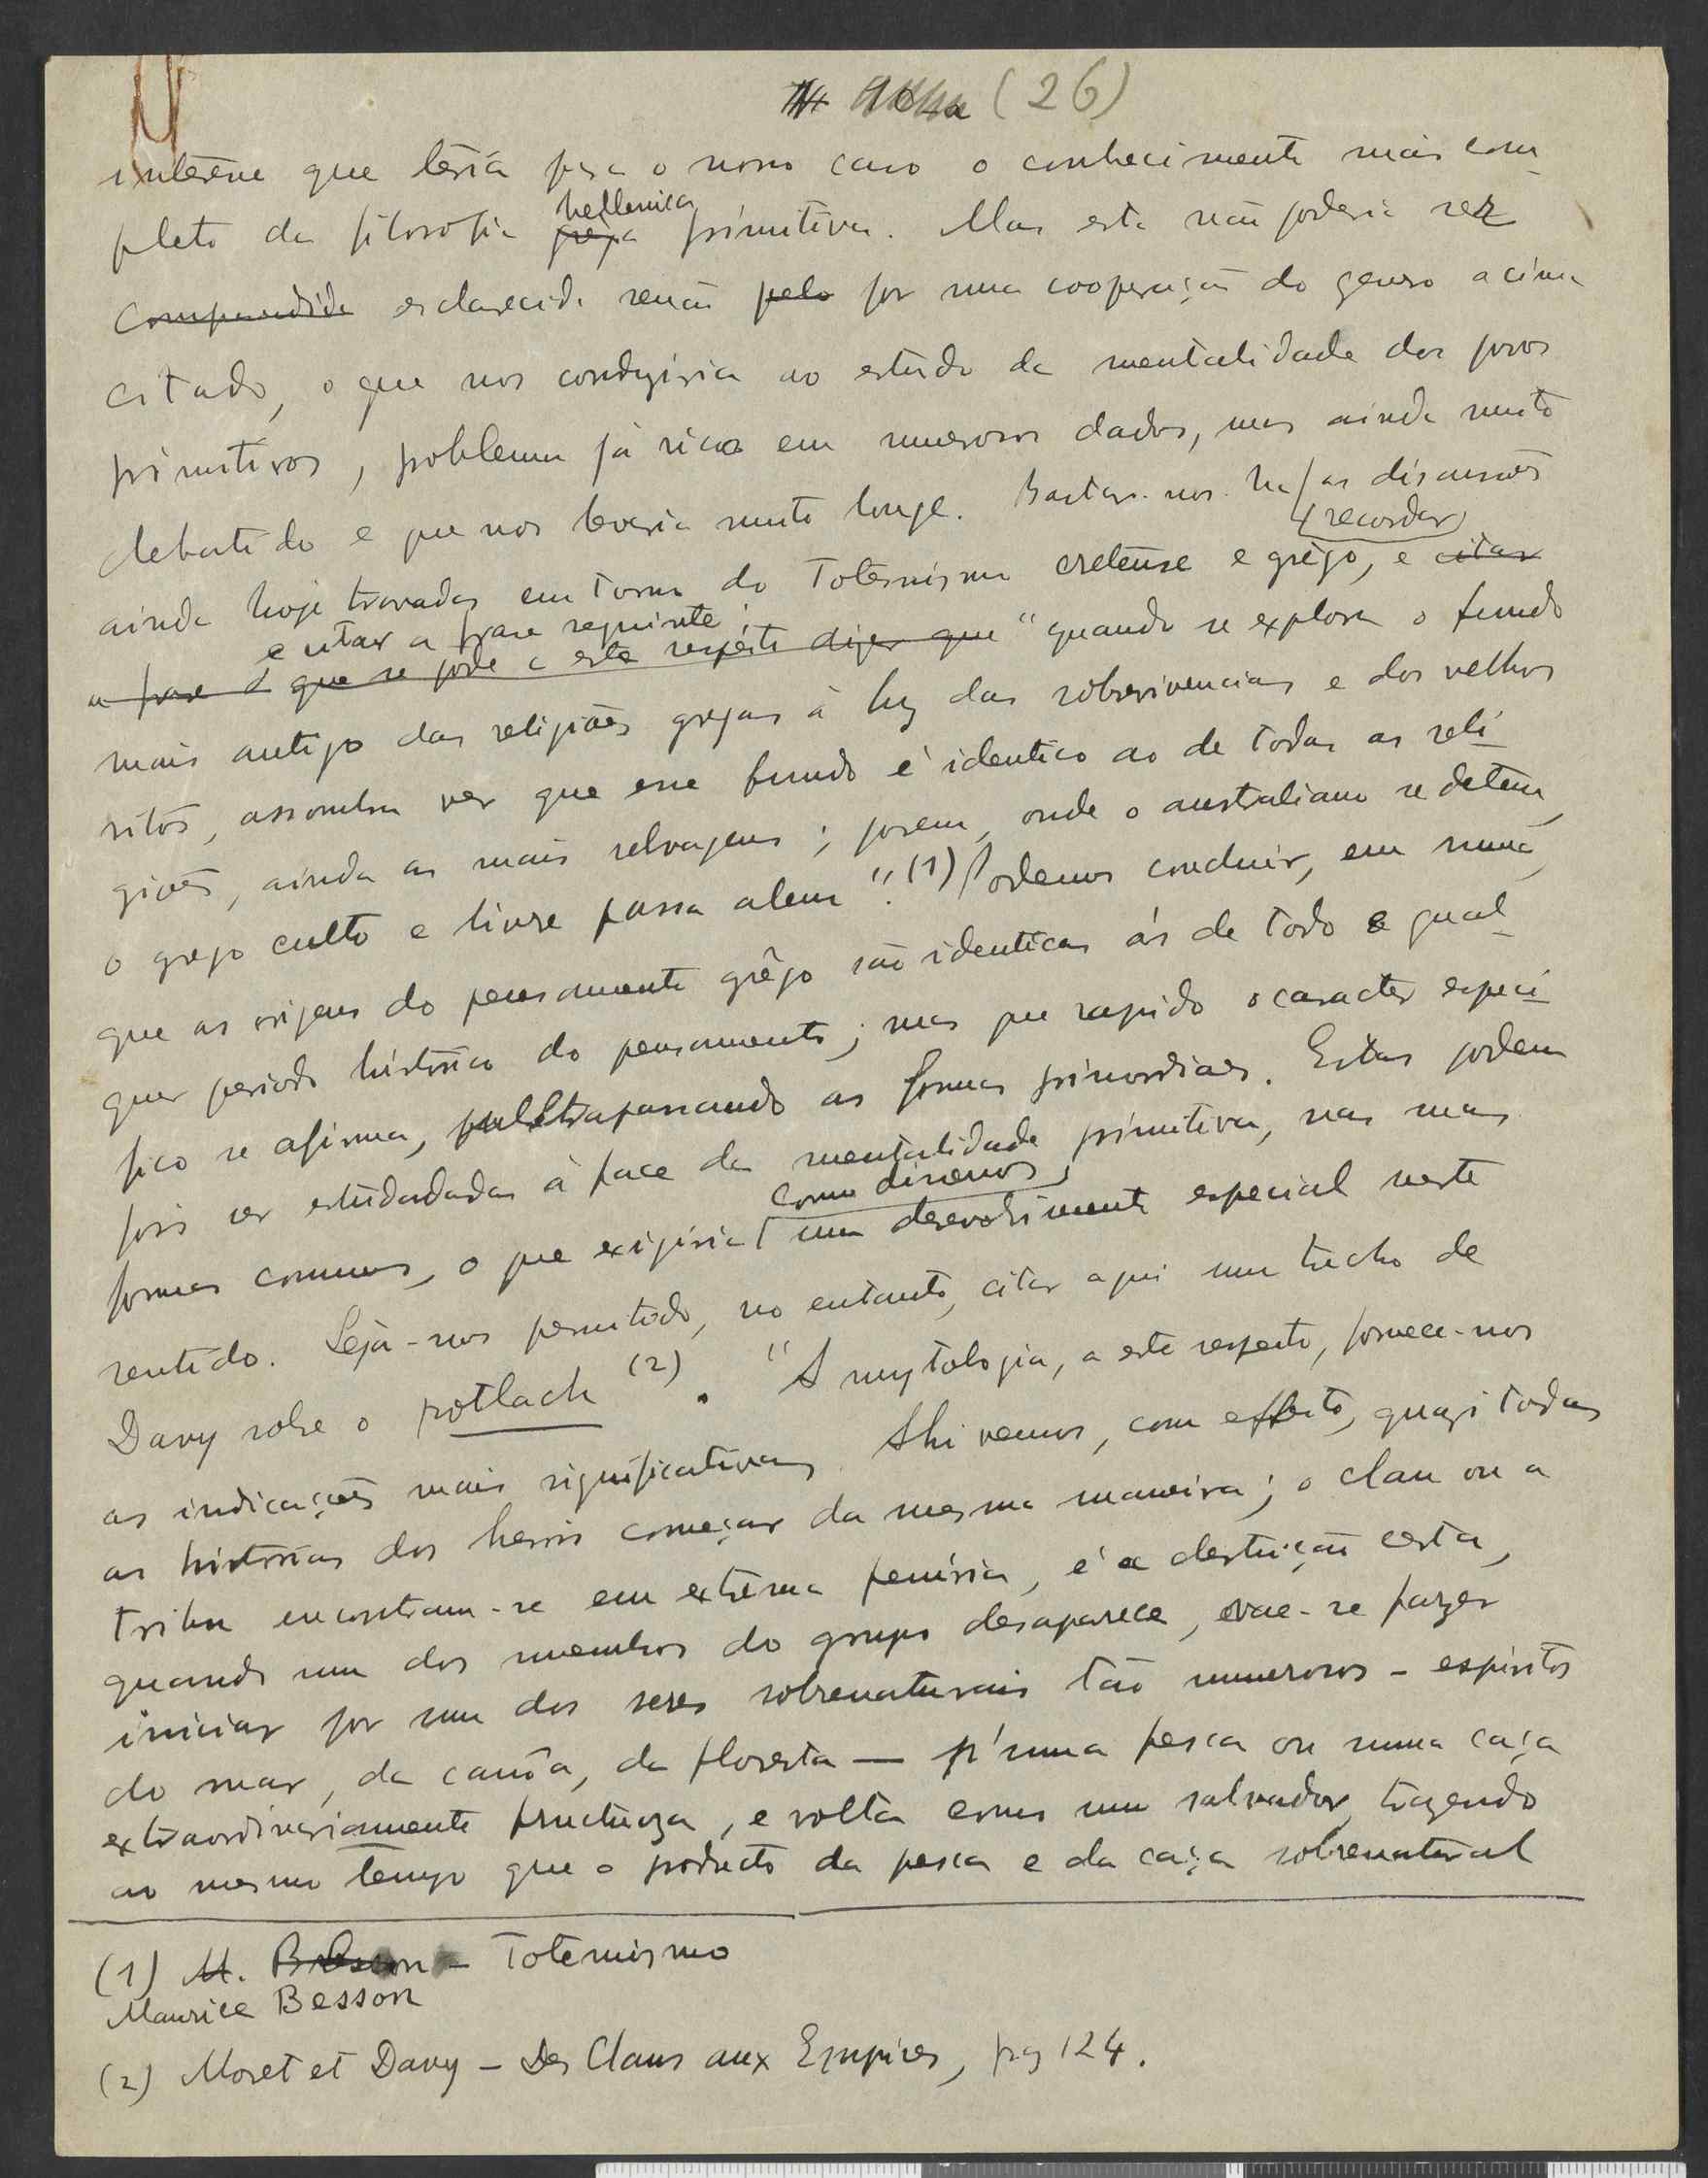 (26)
interêsse que teria para o nosso caso o conhecimento mais com-
pleto da filosofia grega hellenica primitiva. Mas esta não poderia ser
comprendida esclarecida senão pelo por uma cooperação do genero acima
citado, o que nos conduziria ao estudo da mentalidade dos povos
primitivos, problema já rico em numerosos dados, mas ainda muito
debatido e que nos levaria muito longe. Bastar-nos-ha as discussões
recordar
ainda hoje travadas em torno do Totemismo cretense e grêgo, e citar
e citar a frase seguinte:
a frase que se pode a este respeito dizer que "quando se explora o fundo
mais antigo das religiões gregas à luz das sobrevivencias e dos velhos
ritos, assombra ver que esse fundo é identico ao de todas as reli-
giões, ainda as mais selvagens; porem, onde o australiano se detem,
o grego culto e livre passa alem". (1) Podemos concluir, em suma,
que as origens do pensamento grêgo são identicas ás de todo e qual-
quer periodo histórico do pensamento; mas que rapido o caracter especi-
fico se afirma, ultrapassando as formas primordiaes. Estas podem
pois ser estudadas à face da mentalidade primitiva, nas suas
como dissemos,
formas communs, o que exigiria um desevolvimento especial neste
sentido. Seja-nos permitido, no entanto, citar aqui um trecho de
Davy sobre o potlach (2). "A mytologia, a este respeito, fornece-nos
as indicações mais significativas. Ahi vemos, com effeito, quazi todas
as histórias dos herois começar da mesma maneira; o clan ou a
tribu encontram-se em extrema penúria, é a destruição certa,
quando um dos membros do grupo desaparece, vae-se fazer
iniciar por um dos seres sobrenaturais tão numerosos – espiritos
do mar, da canôa, da floresta — p'ruma pesca ou numa caça
extraordinariamente fructuoza, e volta como um salvador, trazendo
ao mesmo tempo que o producto da pesca e da caça sobrenatural
(1) M. Besson – Totemismo
Maurice Besson
(2) Moret et Davy – Des Clans aux Empires, pag 124.